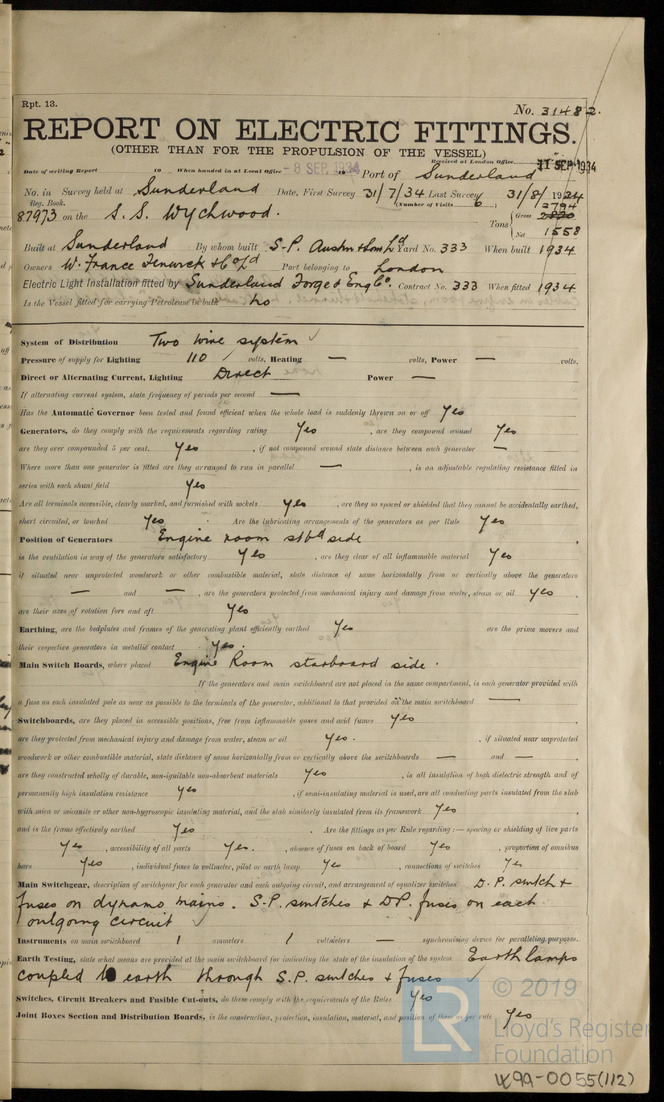 Rpt. 13.
No. 31482.
REPORT ON ELECTRIC FITTINGS.
(OTHER THAN FOR THE PROPULSION OF THE VESSEL)
Received at London Office 11 SEP 1934
Date of writing Report 19 When handed in at Local Office - 8 SEP. 1934 19 Port of Sunderland
No. in Survey held at Sunderland Date, First Survey 31/7/34 Last Survey 31/8/1934
Reg. Book. (Number of Visits 6 )
87973 on the S.S. Wychwood. Tons { Gross 2794
Net 1558
Built at Sunderland By whom built S.P. Austin & Son Ltd Yard No. 333 When built 1934
Owners W. France Fenwick & Co Ltd Port belonging to London
Electric Light Installation fitted by Sunderland Forge & Eng Co. Contract No. 333 When fitted 1934
Is the Vessel fitted for carrying Petroleum in bulk no
System of Distribution Two wire system ✓
Pressure of supply for Lighting 110 volts, Heating — volts, Power — volts.
Direct or Alternating Current, Lighting Direct Power —
If alternating current system, state frequency of periods per second —
Has the Automatic Governor been tested and found efficient when the whole load is suddenly thrown on or off Yes
Generators, do they comply with the requirements regarding rating Yes , are they compound wound Yes
are they over compounded 5 per cent. Yes , if not compound wound state distance between each generator —
Where more than one generator is fitted are they arranged to run in parallel — , is an adjustable regulating resistance fitted in
series with each shunt field Yes
Are all terminals accessible, clearly marked, and furnished with sockets Yes , are they so spaced or shielded that they cannot be accidentally earthed,
short circuited, or touched Yes . Are the lubricating arrangements of the generators as per Rule Yes
Position of Generators Engine room stbd side
is the ventilation in way of the generators satisfactory Yes , are they clear of all inflammable material Yes
if situated near unprotected woodwork or other combustible material, state distance of same horizontally from or vertically above the generators
— and — , are the generators protected from mechanical injury and damage from water, steam or oil Yes ,
are their axes of rotation fore and aft Yes
Earthing, are the bedplates and frames of the generating plant efficiently earthed Yes are the prime movers and
their respective generators in metallic contact Yes.
Main Switch Boards, where placed Engine Room starboard side.
If the generators and main switchboard are not placed in the same compartment, is each generator provided with
a fuse on each insulated pole as near as possible to the terminals of the generator, additional to that provided on the main switchboard —
Switchboards, are they placed in accessible positions, free from inflammable gases and acid fumes Yes
are they protected from mechanical injury and damage from water, steam or oil Yes. , if situated near unprotected
woodwork or other combustible material, state distance of same horizontally from or vertically above the switchboards — and — ,
are they constructed wholly of durable, non-ignitable non-absorbent materials Yes , is all insulation of high dielectric strength and of
permanently high insulation resistance Yes , if semi-insulating material is used, are all conducting parts insulated from the slab
with mica or micanite or other non-hygroscopic insulating material, and the slab similarly insulated from its framework Yes ,
and is the frame effectively earthed Yes . Are the fittings as per Rule regarding :— spacing or shielding of live parts
Yes , accessibility of all parts Yes. , absence of fuses on back of board Yes , proportion of omnibus
bars Yes , individual fuses to voltmeter, pilot or earth lamp Yes , connections of switches Yes
Main Switchgear, description of switchgear for each generator and each outgoing circuit, and arrangement of equalizer switches D.P. switch &
fuses on dynamo mains. S.P. switches & DP. fuses on each
outgoing circuit ✓
Instruments on main switchboard 1 ammeters 1 voltmeters — synchronising device for paralleling purposes.
Earth Testing, state what means are provided at the main switchboard for indicating the state of the insulation of the system Earth lamps
coupled to earth through S.P. switches & fuses ✓
Switches, Circuit Breakers and Fusible Cut-outs, do these comply with the requirements of the Rules Yes
Joint Boxes Section and Distribution Boards, is the construction, protection, insulation, material, and position of these as per rule Yes
LR
© 2019
Lloyd's Register
Foundation
W99-0055(112)